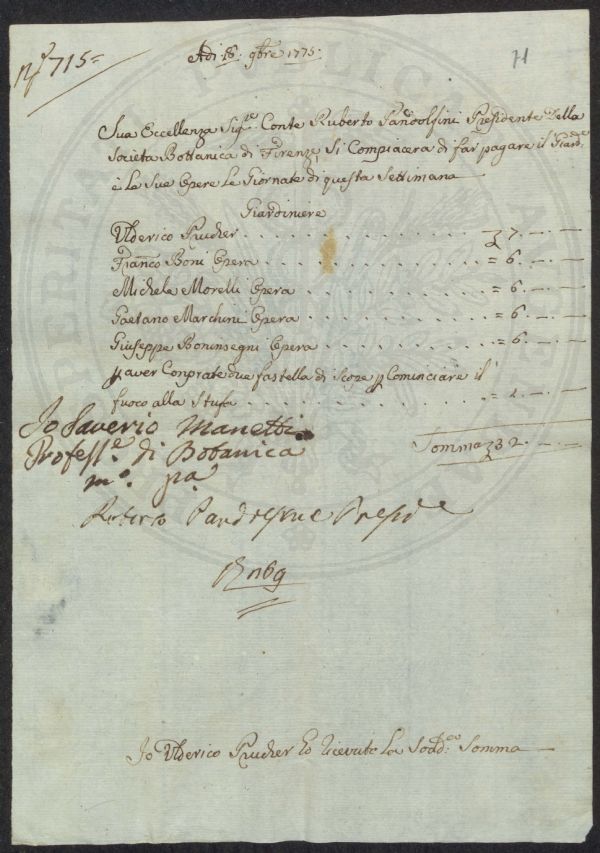 N.° 715 =
Adi 18. 9bre 1775.
71
Sua Eccellenza Sig.re Conte Ruberto Pandolfini Presidente della
Società Bottanica di Firenze, Si Compiacerà di far pagare il Giard.e
e la Sue Opere Le Giornate di questa Settimana
Giardiniere
Ulderico Prucher . . . . . . . . . . . . . . . . 7. — —
Fran.co Boni Opera . . . . . . . . . . . . . . . = 6. — —
Michele Morelli Opera . . . . . . . . . . . . = 6. — —
Gaetano Marchini Opera . . . . . . . . . . . = 6. — —
Giuseppe Boninsegni Opera . . . . . . . . . . = 6. — —
p aver Conprate due fastella di Scope p Cominciare il
fuoco alla Stufa . . . . . . . . . . . . . . = 1. — —
Io Saverio Manetti
Profess.e di Botanica
m.o pa
Somma 32. — —
Ruberto Pandolfini Presid.e
Io Ulderico Prucher ho ricevuto La Sodd.a Somma —